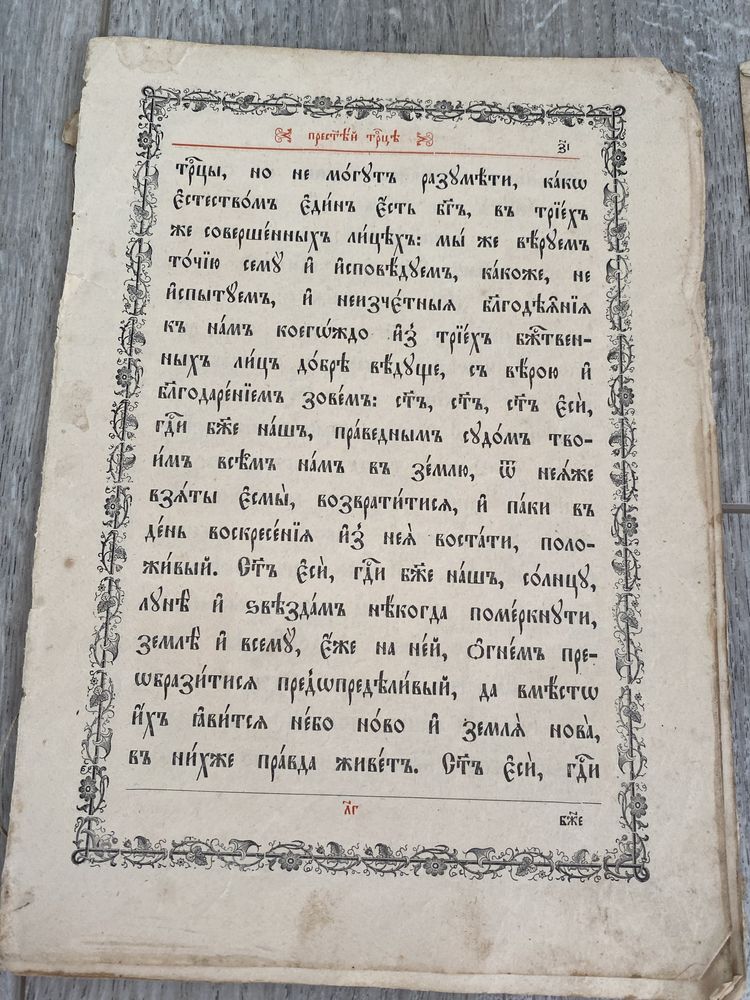 прест҃ѣ́й трⷪ҇цѣ
з҃і
трⷪ҇цы, но не мо́гутъ разумѣ́ти, ка́кѡ
є҆стество́мъ є҆ди́нъ є҆́сть бг҃ъ, въ трїе́хъ
же соверше́нныхъ ли́цѣхъ: мы́ же вѣ́руемъ
то́чїю сему̀ и҆ и҆сповѣ́дуемъ, ка́коже, не
и҆спыту́емъ, и҆ неизче́тныѧ бл҃годѣѧ̑нїѧ
къ на́мъ коегѡ́ждо и҆з̾ трїе́хъ бжⷭ҇твен-
ныхъ ли́цъ до́брѣ вѣ́дуще, съ вѣ́рою и҆
бл҃годаре́нїемъ зове́мъ: ст҃ъ, ст҃ъ, ст҃ъ є҆сѝ,
гдⷭ҇и бж҃е на́шъ, пра́веднымъ судо́мъ тво-
и́мъ всѣ̑мъ на́мъ въ зе́млю, ѿ неѧ́же
взѧ́ты є҆смы̀, возврати́тисѧ, и҆ па́ки въ
де́нь воскресе́нїѧ и҆з̾ неѧ̀ воста́ти, поло-
жи́вый. Ст҃ъ є҆сѝ, гдⷭ҇и бж҃е на́шъ, со́лнцу,
лунѣ̀ и҆ ѕвѣзда́мъ нѣ́когда поме́ркнути,
землѣ́ и҆ всему̀, є҆́же на не́й, ѻ҆гне́мъ пре-
ѡбрази́тисѧ предⷹѡпредѣли́вый, да вмѣ́стѡ
и҆́хъ ꙗ҆ви́тсѧ не́бо но́во и҆ землѧ̀ нова̀,
въ ни́хже пра́вда живе́тъ. Ст҃ъ є҆сѝ, гдⷭ҇и
л҃г
бж҃е